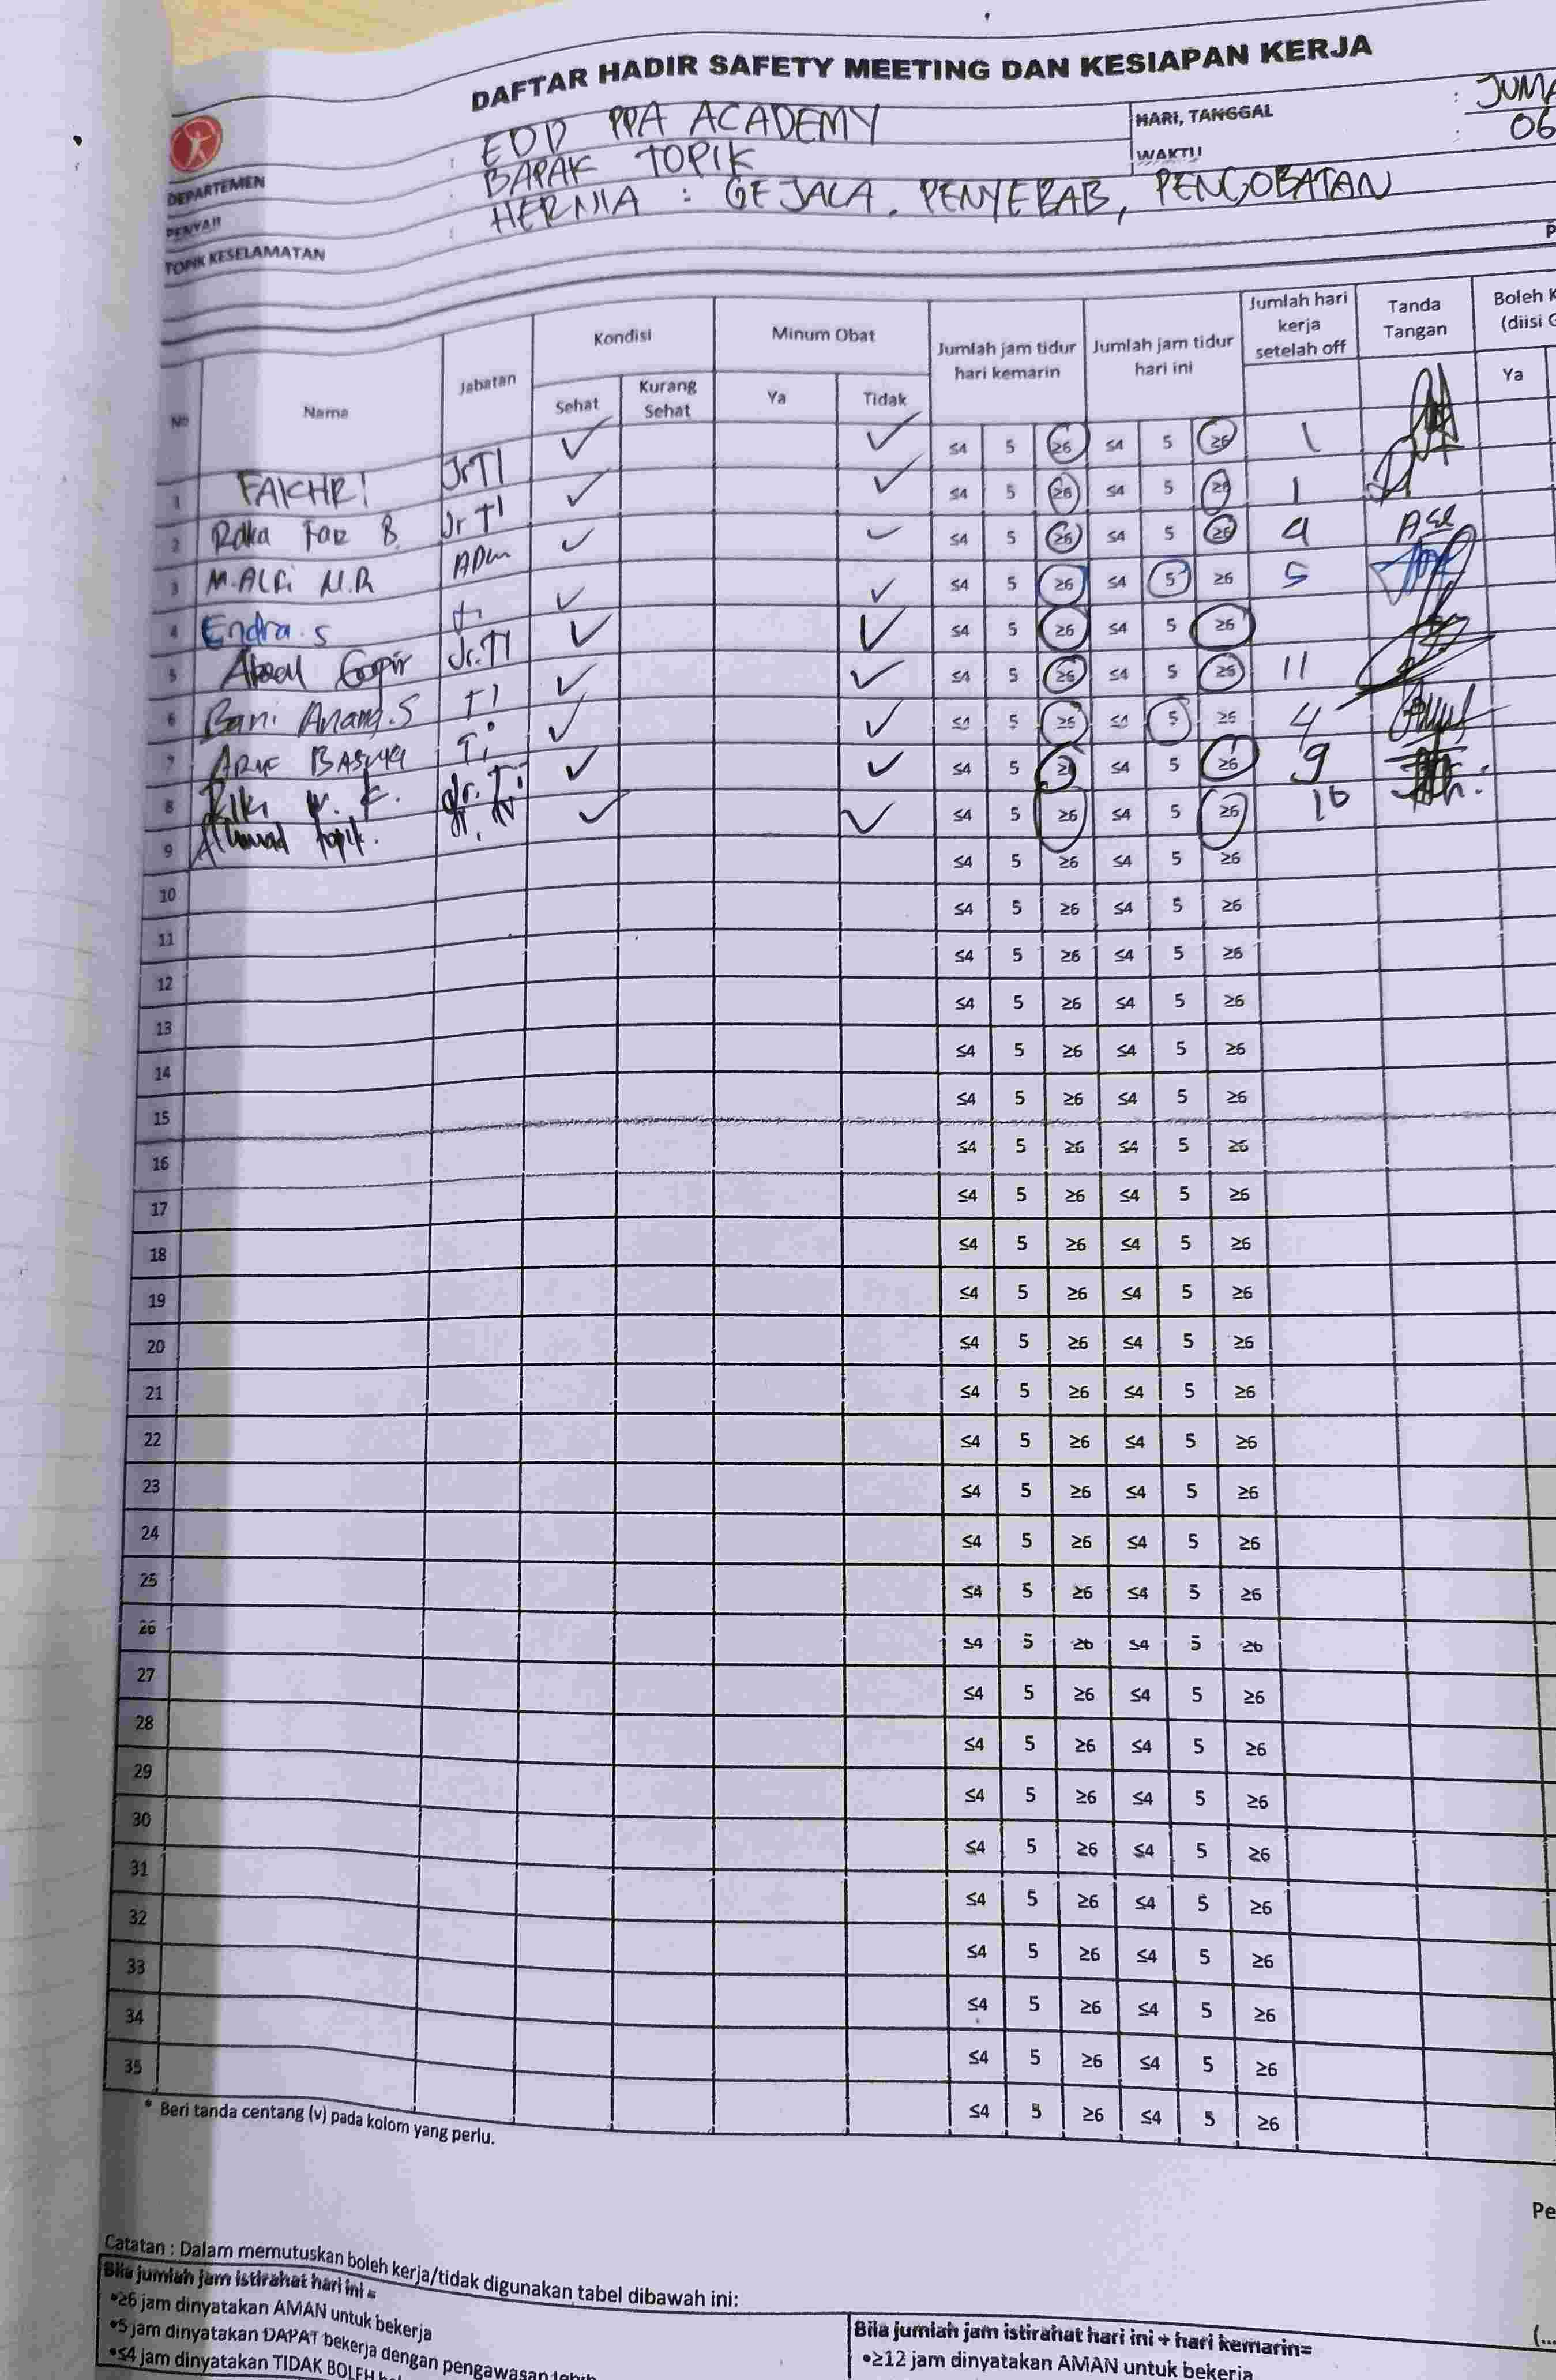 DAFTAR HADIR SAFETY MEETING DAN KESIAPAN KERJA
DEPARTEMEN : EDD PPA ACADEMY
: BAPAK TOPIK
TOPIK KESELAMATAN : HERNIA : GEJALA, PENYEBAB, PENGOBATAN
HARI, TANGGAL :
WAKTU : 06
No Nama Jabatan Kondisi Minum Obat Jumlah jam tidur hari kemarin Jumlah jam tidur hari ini Jumlah hari kerja setelah off Tanda Tangan Boleh
Sehat Kurang Sehat Ya Tidak Ya
1 FAKHRI Jr TI ✓ ✓ ≤4 5 ≥6 ≤4 5 ≥6 1
2 Raka Fae B. Jr TI ✓ ✓ ≤4 5 ≥6 ≤4 5 ≥6 1
3 M. ALFi N.R ADm ✓ ✓ ≤4 5 ≥6 ≤4 5 ≥6
4 Endra. S ✓ ✓ ≤4 5 ≥6 ≤4 5 ≥6 5
5 Gopir Jr. TI ✓ ✓ ≤4 5 ≥6 ≤4 5 ≥6
6 Bani Anang. S TI ✓ ✓ ≤4 5 ≥6 ≤4 5 ≥6 11
7 Ti ✓ ✓ ≤4 5 ≥6 ≤4 5 ≥6 4
8 Riki ✓ ✓ ≤4 5 ≥6 ≤4 5 ≥6 9
9 Topik. ✓ ✓ ≤4 5 ≥6 ≤4 5 ≥6 10
10 ≤4 5 ≥6 ≤4 5 ≥6
11 ≤4 5 ≥6 ≤4 5 ≥6
12 ≤4 5 ≥6 ≤4 5 ≥6
13 ≤4 5 ≥6 ≤4 5 ≥6
14 ≤4 5 ≥6 ≤4 5 ≥6
15 ≤4 5 ≥6 ≤4 5 ≥6
16 ≤4 5 ≥6 ≤4 5 ≥6
17 ≤4 5 ≥6 ≤4 5 ≥6
18 ≤4 5 ≥6 ≤4 5 ≥6
19 ≤4 5 ≥6 ≤4 5 ≥6
20 ≤4 5 ≥6 ≤4 5 ≥6
21 ≤4 5 ≥6 ≤4 5 ≥6
22 ≤4 5 ≥6 ≤4 5 ≥6
23 ≤4 5 ≥6 ≤4 5 ≥6
24 ≤4 5 ≥6 ≤4 5 ≥6
25 ≤4 5 ≥6 ≤4 5 ≥6
26 ≤4 5 ≥6 ≤4 5 ≥6
27 ≤4 5 ≥6 ≤4 5 ≥6
28 ≤4 5 ≥6 ≤4 5 ≥6
29 ≤4 5 ≥6 ≤4 5 ≥6
30 ≤4 5 ≥6 ≤4 5 ≥6
31 ≤4 5 ≥6 ≤4 5 ≥6
32 ≤4 5 ≥6 ≤4 5 ≥6
33 ≤4 5 ≥6 ≤4 5 ≥6
34 ≤4 5 ≥6 ≤4 5 ≥6
35 ≤4 5 ≥6 ≤4 5 ≥6
* Beri tanda centang (v) pada kolom yang perlu.
Catatan : Dalam memutuskan boleh kerja/tidak digunakan tabel dibawah ini:
Bila jumlah jam istirahat hari ini =
•≥6 jam dinyatakan AMAN untuk bekerja
•5 jam dinyatakan DAPAT bekerja dengan pengawasan
•≤4 jam dinyatakan TIDAK BOLEH
Bila jumlah jam istirahat hari ini + hari kemarin=
•≥12 jam dinyatakan AMAN untuk bekerja